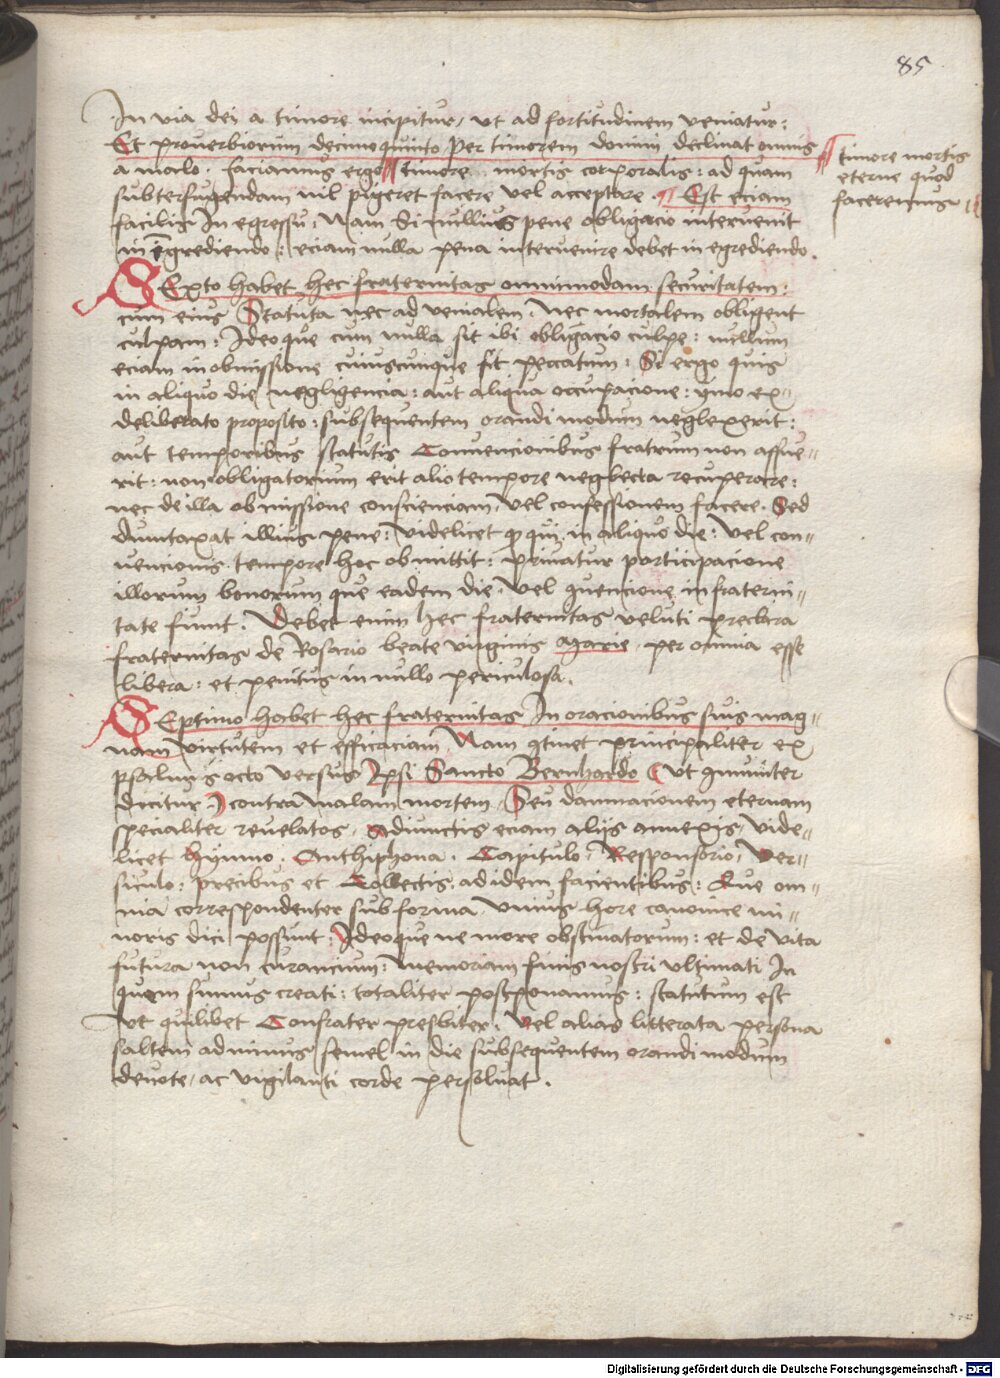 85
In via dei a timore incipitur, ut ad fortitudinem veniatur:
Et proverbiorum decimoquinto Per timorem domini declinat omnis
a malo. faciamus ergo timore mortis corporalis: ad quam
subterfugendam nil pigeret facere vel acceptare Est eciam
facilis In egressu: Nam Si nullius pene obligacio intervenit
in Egrediendo: eciam nulla pena intervenire debet in egrediendo.
timore mortis
eterne quod
faceremus
SExto habet hec fraternitas omnimodam securitatem:
cum eius Statuta nec ad venialem, nec mortalem obligent
culpam: Ideoque cum nulla sit ibi obligacio culpe: nullum
eciam in obmissione cuiuscunque sit peccatum: Si ergo quis
in aliquo die negligencia: aut aliqua occupacione: ymo ex
deliberato proposito: subsequentem orandi modum neglexerit:
aut temporibus statutis Convencionibus fratrum non affue=
rit: non obligatorium erit alio tempore neglecta recuperare:
nec de illa obmissione conscienciam, vel confessionem facere. Sed
dumtaxat illius pene: videlicet qui in aliquo die: vel con=
vencionis tempore hoc obmittit: privatur participacione
illorum bonorum que eadem die, vel quencione in fraterni=
tate fiunt. Debet enim hec fraternitas veluti preclara
fraternitas de Rosario beate virginis Marie, per omnia esse
libera: et penitus in nullo periculosa.
SEptimo habet hec fraternitas In oracionibus suis mag=
nam virtutem et efficaciam Nam qtinet principaliter ex
psalmis octo versus Ipsi Sancto Bernhardo (Ut qmuniter
dicitur) contra malam mortem, Seu damnacionem eternam
specialiter revelatos, adiunctis eciam alijs annexis, vide=
licet Hymno. Anthiphona. Capitulo, Responsorio, Ver=
siculo: precibus et Collectis, ad idem facientibus: Que om=
nia correspondenter sub forma unius hore canonice mi=
noris dici possunt: Ideoque ne more obstinatorum: et de vita
futura non curancium: memoriam finis nostri ultimati In
quem sumus creati: totaliter postponamus: statutum est
Ut quilibet Confrater presbiter, Vel alias litterata persona
saltem ad minus semel in die subsequentem orandi modum
devote, ac vigilanti corde persolvat.
Digitalisierung gefördert durch die Deutsche Forschungsgemeinschaft - DFG